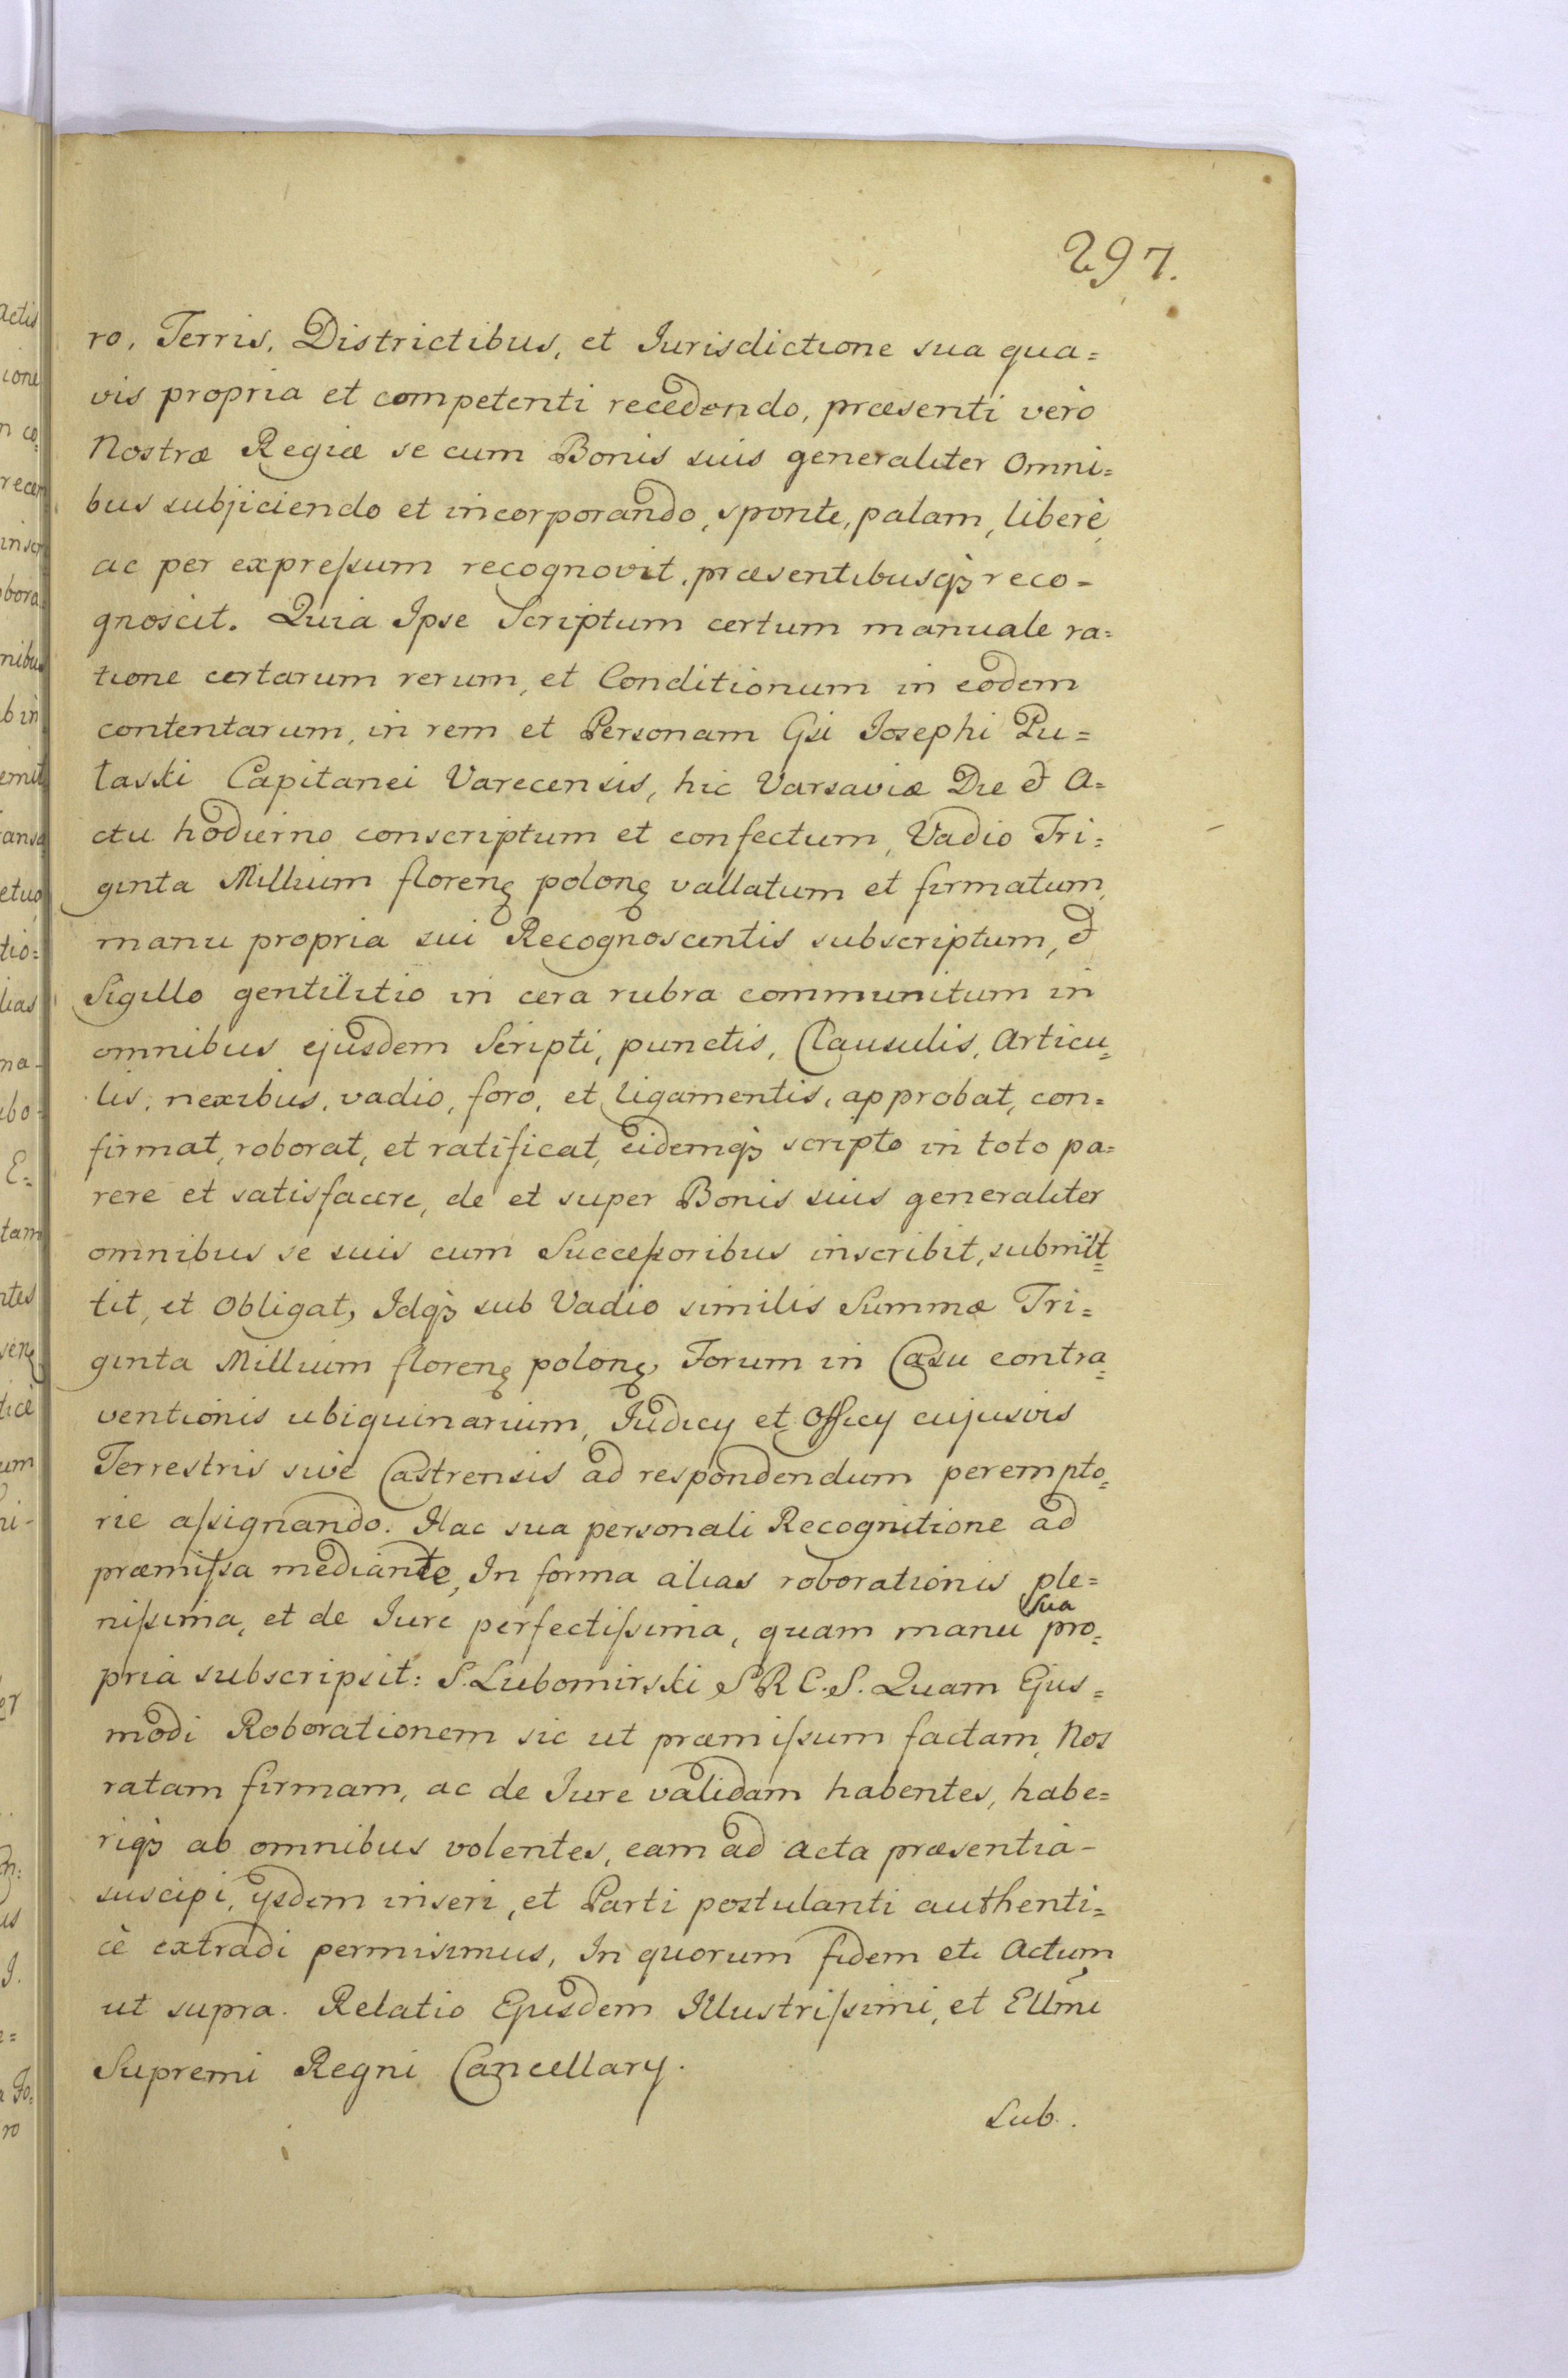 297.
ro, Terris, Districtibus, et Jurisdictione sua qua=
vis propria et competenti recedendo, præsenti verò
Nostræ Regiæ se cum Bonis suis generaliter Omni=
bus subjiciendo et incorporando, sponte, palam, liberè,
ac per expreſsum recognovit, præsentibusq́ȝ reco=
gnoscit. Quia Ipse Scriptum certum manuale ra=
tione certarum rerum, et Conditionum in eodem
contentarum, in rem et Personam Gsi Josephi Pu=
łaski Capitanei Varecensis, hic Varsaviæ Die & A=
ctu hodierno conscriptum et confectum, Vadio Tri=
ginta Millium florenꝫ polonꝫ vallatum et firmatum,
manu propria sui Recognoscentis subscriptum, &
Sigillo gentilitio in cera rubra communitum in
omnibus ejusdem Scripti, punctis, Clausulis, Articu=
lis, nexibus, vadio, foro, et ligamentis, approbat, con=
firmat, roborat, et ratificat, eidemq́ȝ scripto in toto pa=
rere et satisfacere, de et super Bonis suis generaliter
omnibus se suis cum Succeſsoribus inscribit, submit=
tit, et Obligat, Idq́ȝ sub Vadio similis Summæ Tri=
ginta Millium florenꝫ polonꝫ, Forum in Casu contra=
ventionis ubiquinarium, Judicy et Officy cujusvis
Terrestris sivè Castrensis ad respondendum perempto=
rie aſsignando. Hac sua personali Recognitione ad
præmiſsa mediante, In forma alias roborationis ple=
niſsima, et de Jure perfectiſsima, quam manu sua pro=
pria subscripsit: S. Lubomirski S R C. S. Quam Ejus=
modi Roborationem sic ut præmiſsum factam, Nos
ratam firmam, ac de Jure validam habentes, habe=
riq́ȝ ab omnibus volentes, eam ad Acta præsentia-
suscipi, ysdem inseri, et Parti postulanti authenti=
cè extradi permisimus, In quorum fidem etc Actum
ut supra. Relatio Ejusdem Illustriſsimi, et Ellm̃i
Supremi Regni Cancellary.
Sub.